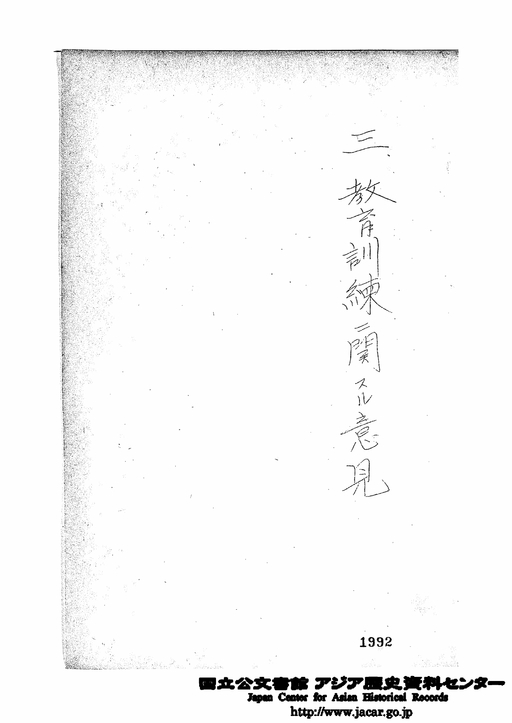 三、教育訓練ニ関スル意見
1992
国立公文書館 アジア歴史資料センター
Japan Center for Asian Historical Records
http://www.jacar.go.jp